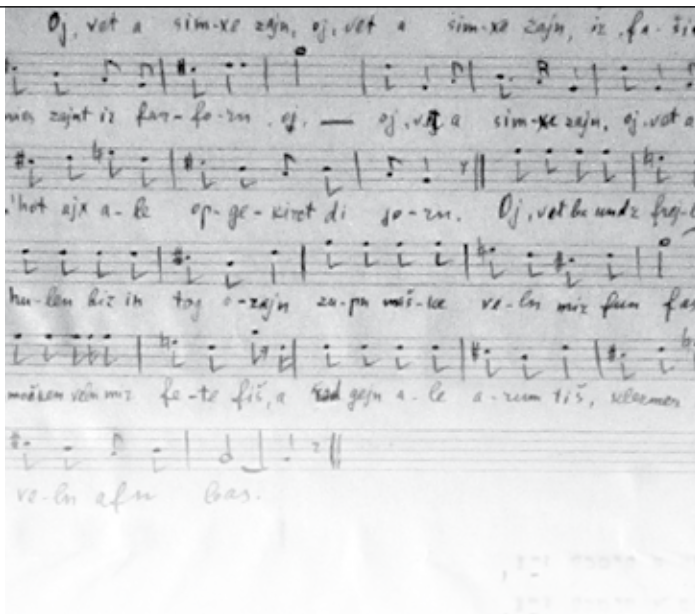 Oj, vet a sim-xe zajn, oj, vet a sim-xe zajn, iz fa-ši
zajnt iz far-fo-rn. oj. — oj, vet a sim-xe zajn, oj, vet a
'hot ajx a-le op-ge-kirct di jo-rn. Oj, vet ba undz frej-
hu-len biz in tog a-rajn zu-pn maš-ke ve-ln mir fun
veln mir fe-te fiš, a rod gejn a-le a-rum tiš, klezmer
ve-ln afn bas.